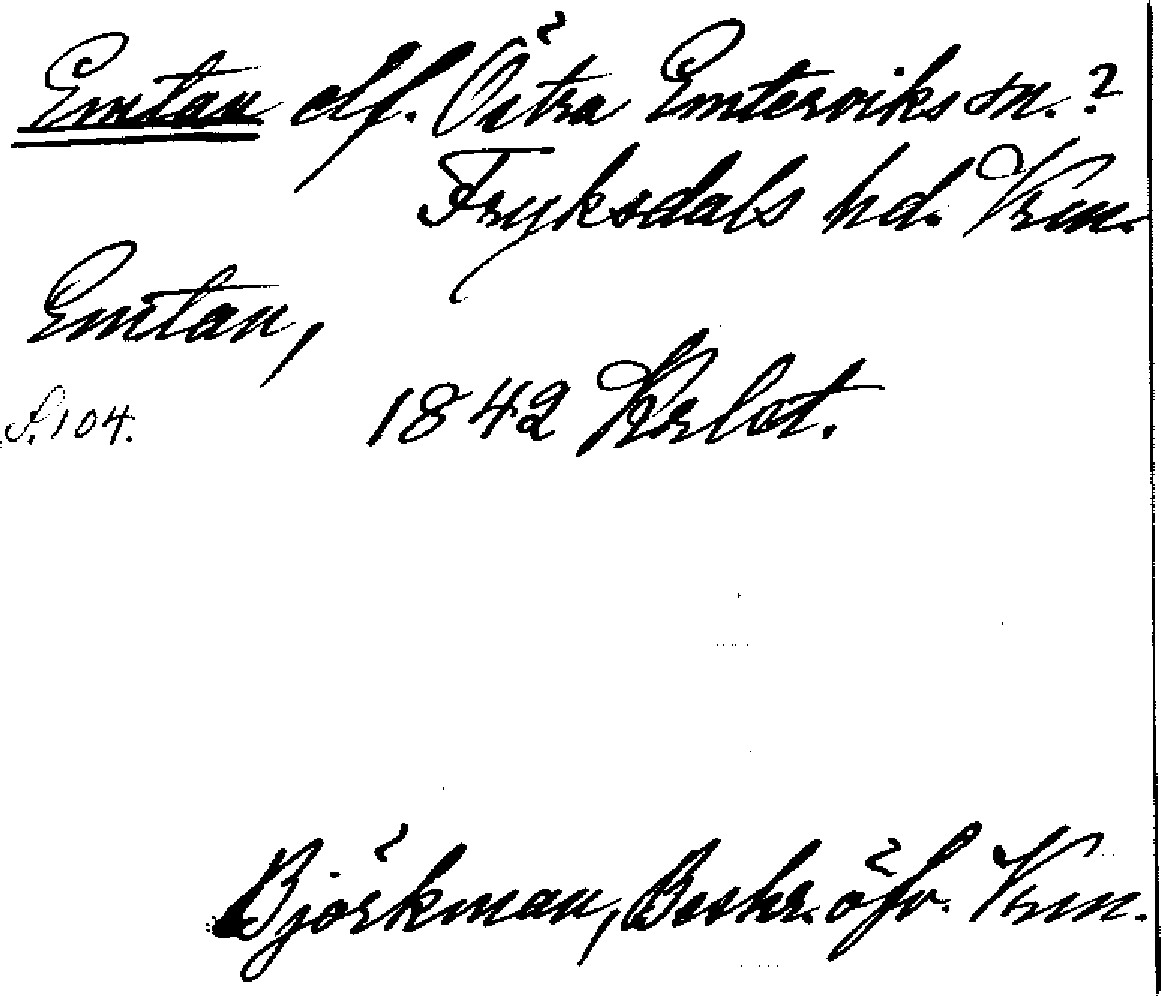 Emtan elf. Östra Emterviks sn.?
Fryksdals hd. Vrm.
Emtan,
S. 104. 1842 Krlst.
Björkman, Beskr. öfv. Vrm.